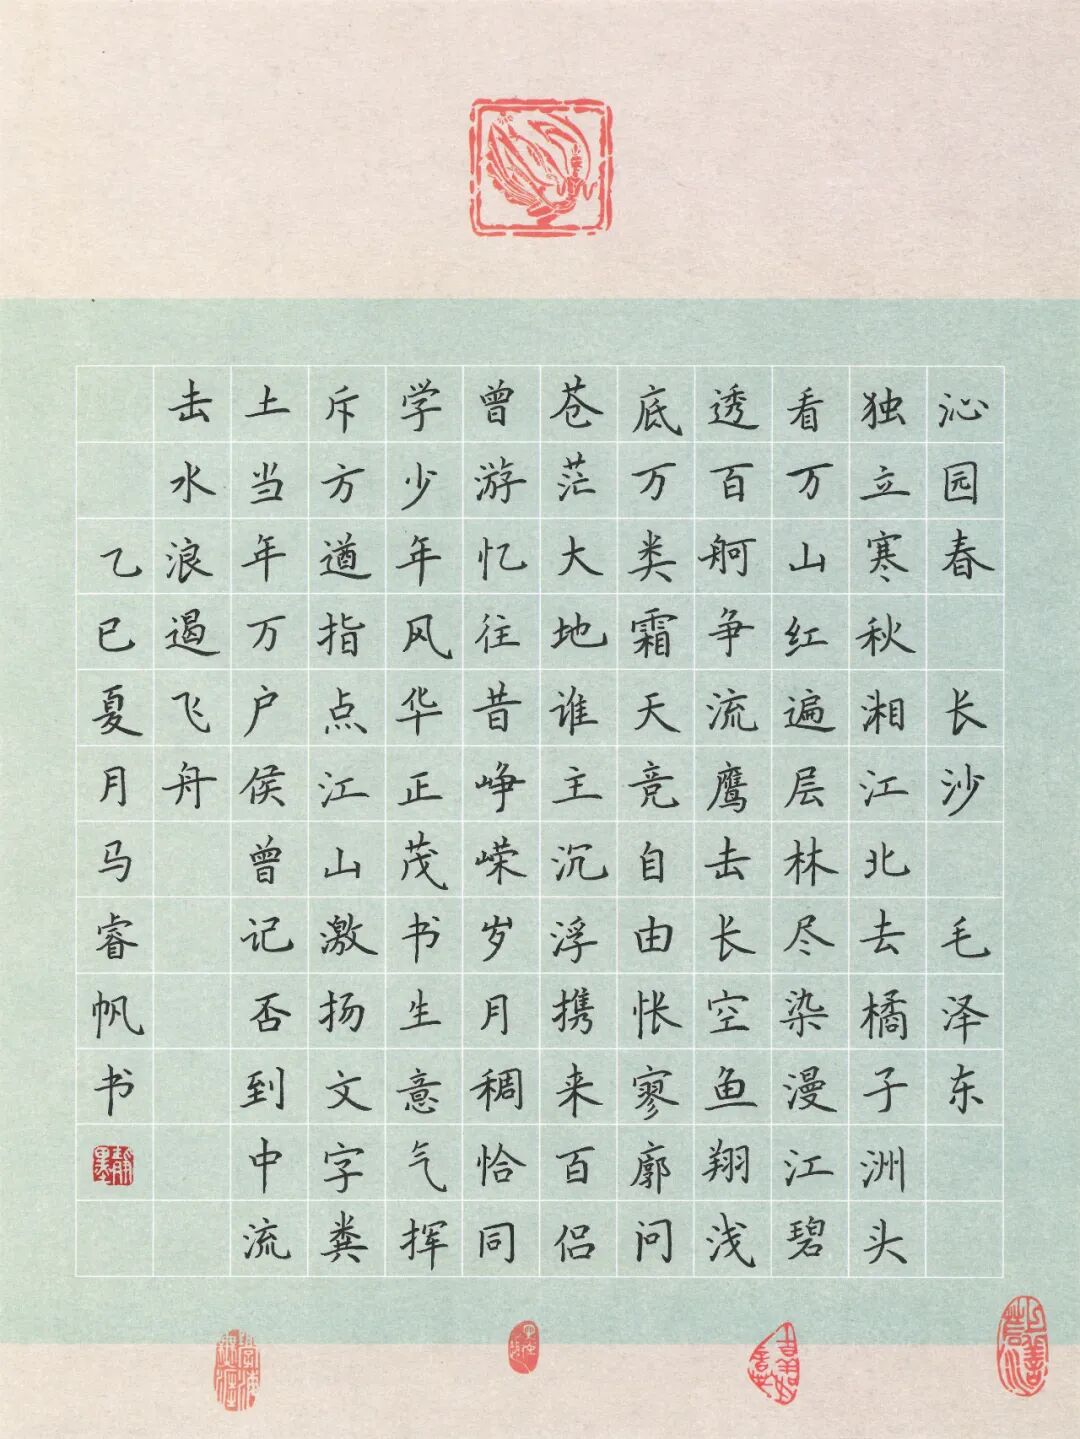 沁园春 长沙 毛泽东
独立寒秋湘江北去橘子洲头
看万山红遍层林尽染漫江碧
透百舸争流鹰击长空鱼翔浅
底万类霜天竞自由怅寥廓问
苍茫大地谁主沉浮携来百侣
曾游忆往昔峥嵘岁月稠恰同
学少年风华正茂书生意气挥
斥方遒指点江山激扬文字粪
土当年万户侯曾记否到中流
击水浪遏飞舟
乙巳夏月马睿帆书